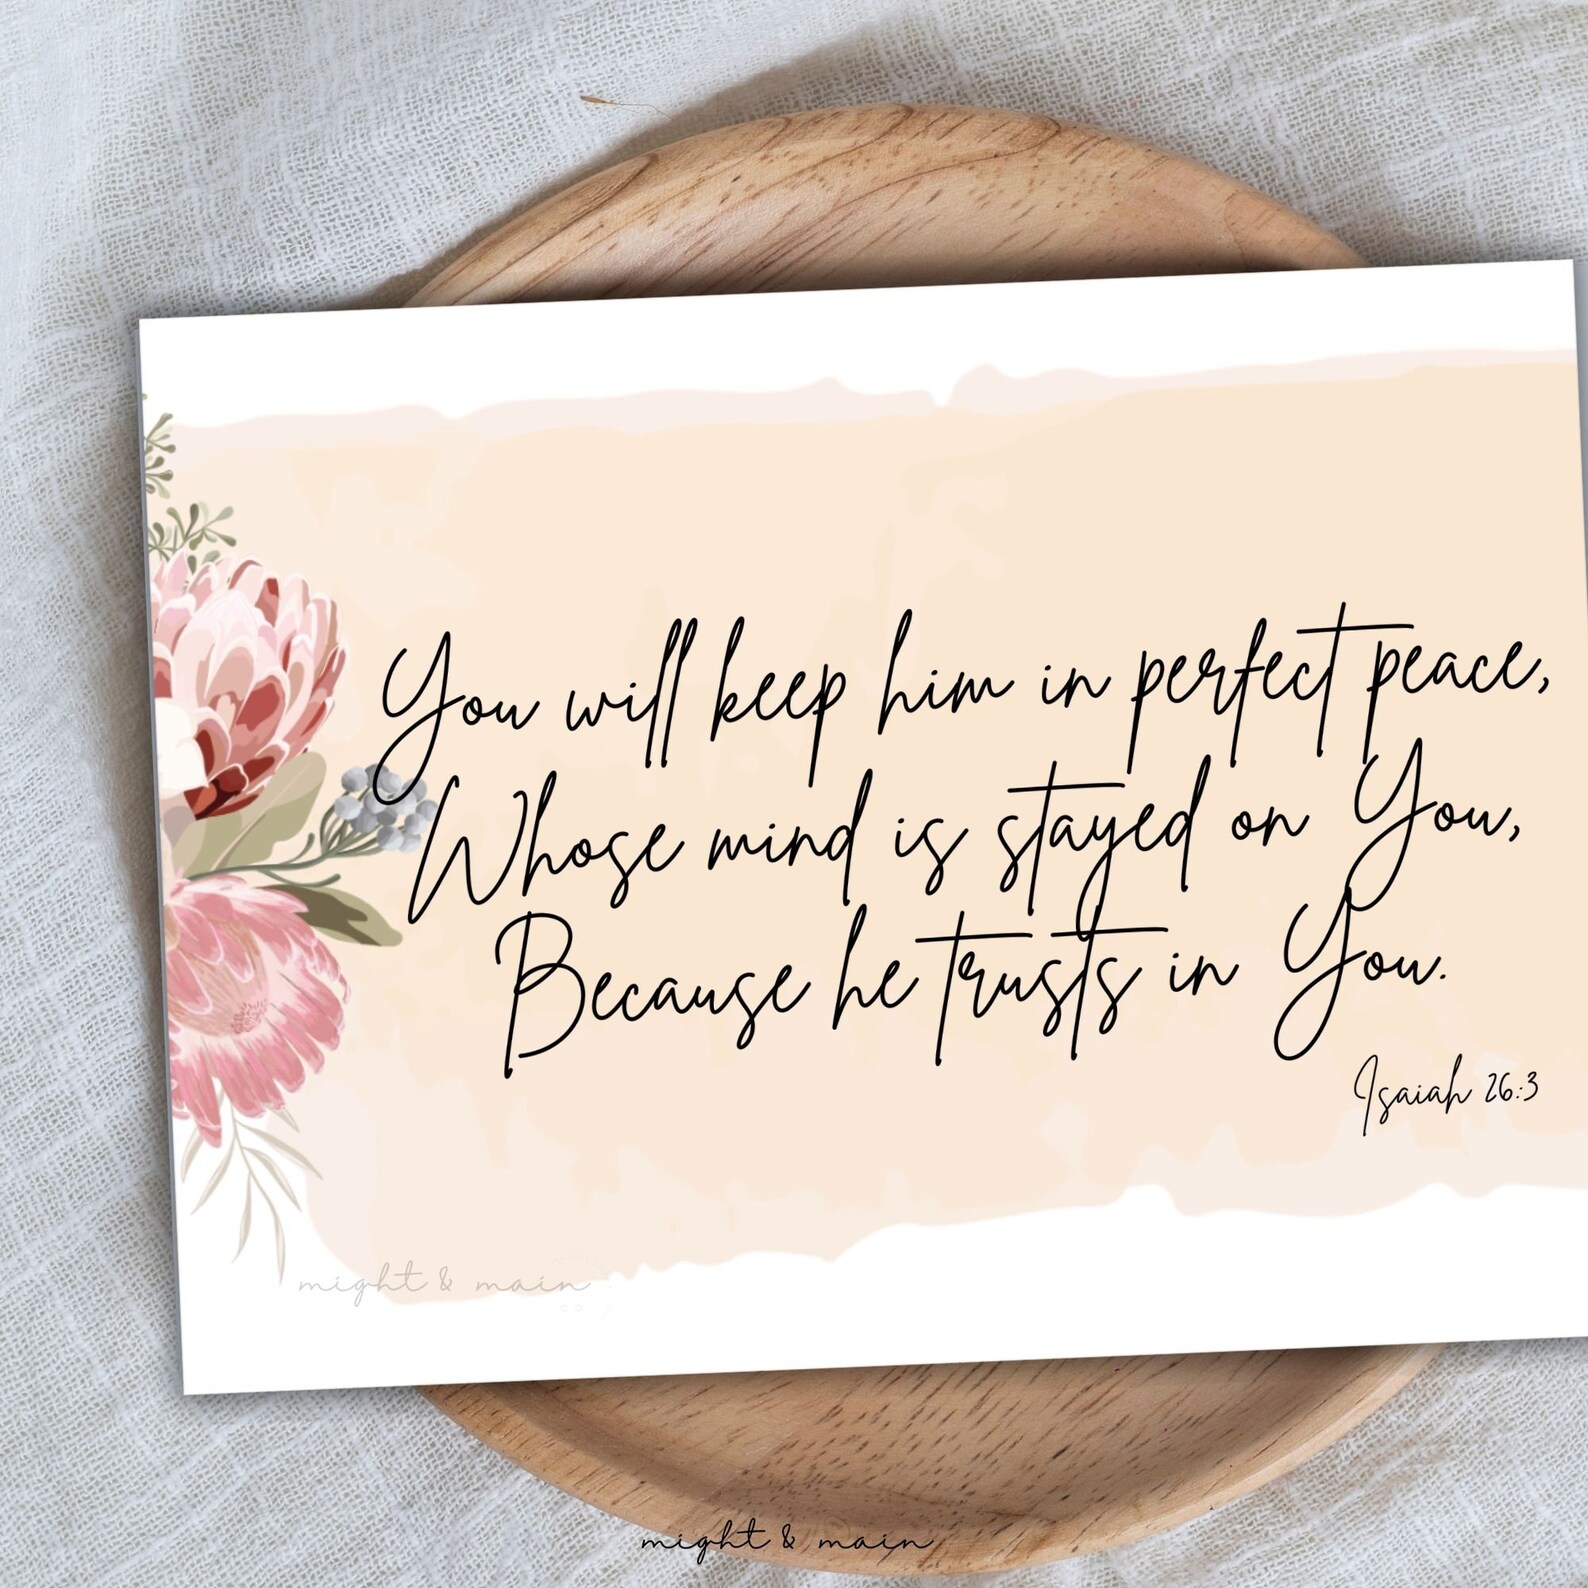 You will keep him in perfect peace,
Whose mind is stayed on You,
Because he trusts in You.
Isaiah 26:3
might & main
might & main